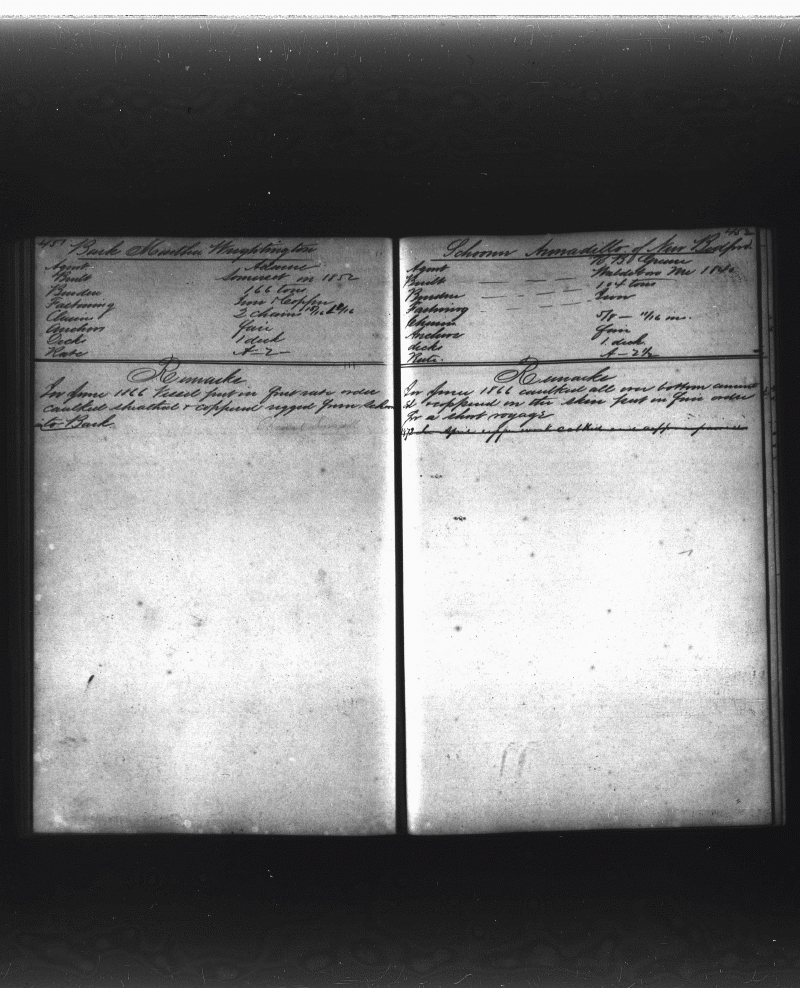 451 Bark Martha Wrightington
Agent Adams
Built Somerset in 1852
Burden 166 tons
Fastening Iron & Copper
Chains 2 chains
Anchors fair
Decks 1 deck
Rate A-2
Remarks
In June 1866 Vessel put in first rate order
caulked sheathed & coppered rigged from
into Bark
452
Schooner Armadillo of New Bedford
Agent
Built Waldoboro Me 1840
Burden 104 tons
Fastening Iron
Chains 5/8 — 11/16 in.
Anchors fair
deck 1 deck
Rate. A-2½
Remarks
In June 1866 caulked all over bottom
& coppered on the skin put in fair order
for a short voyage